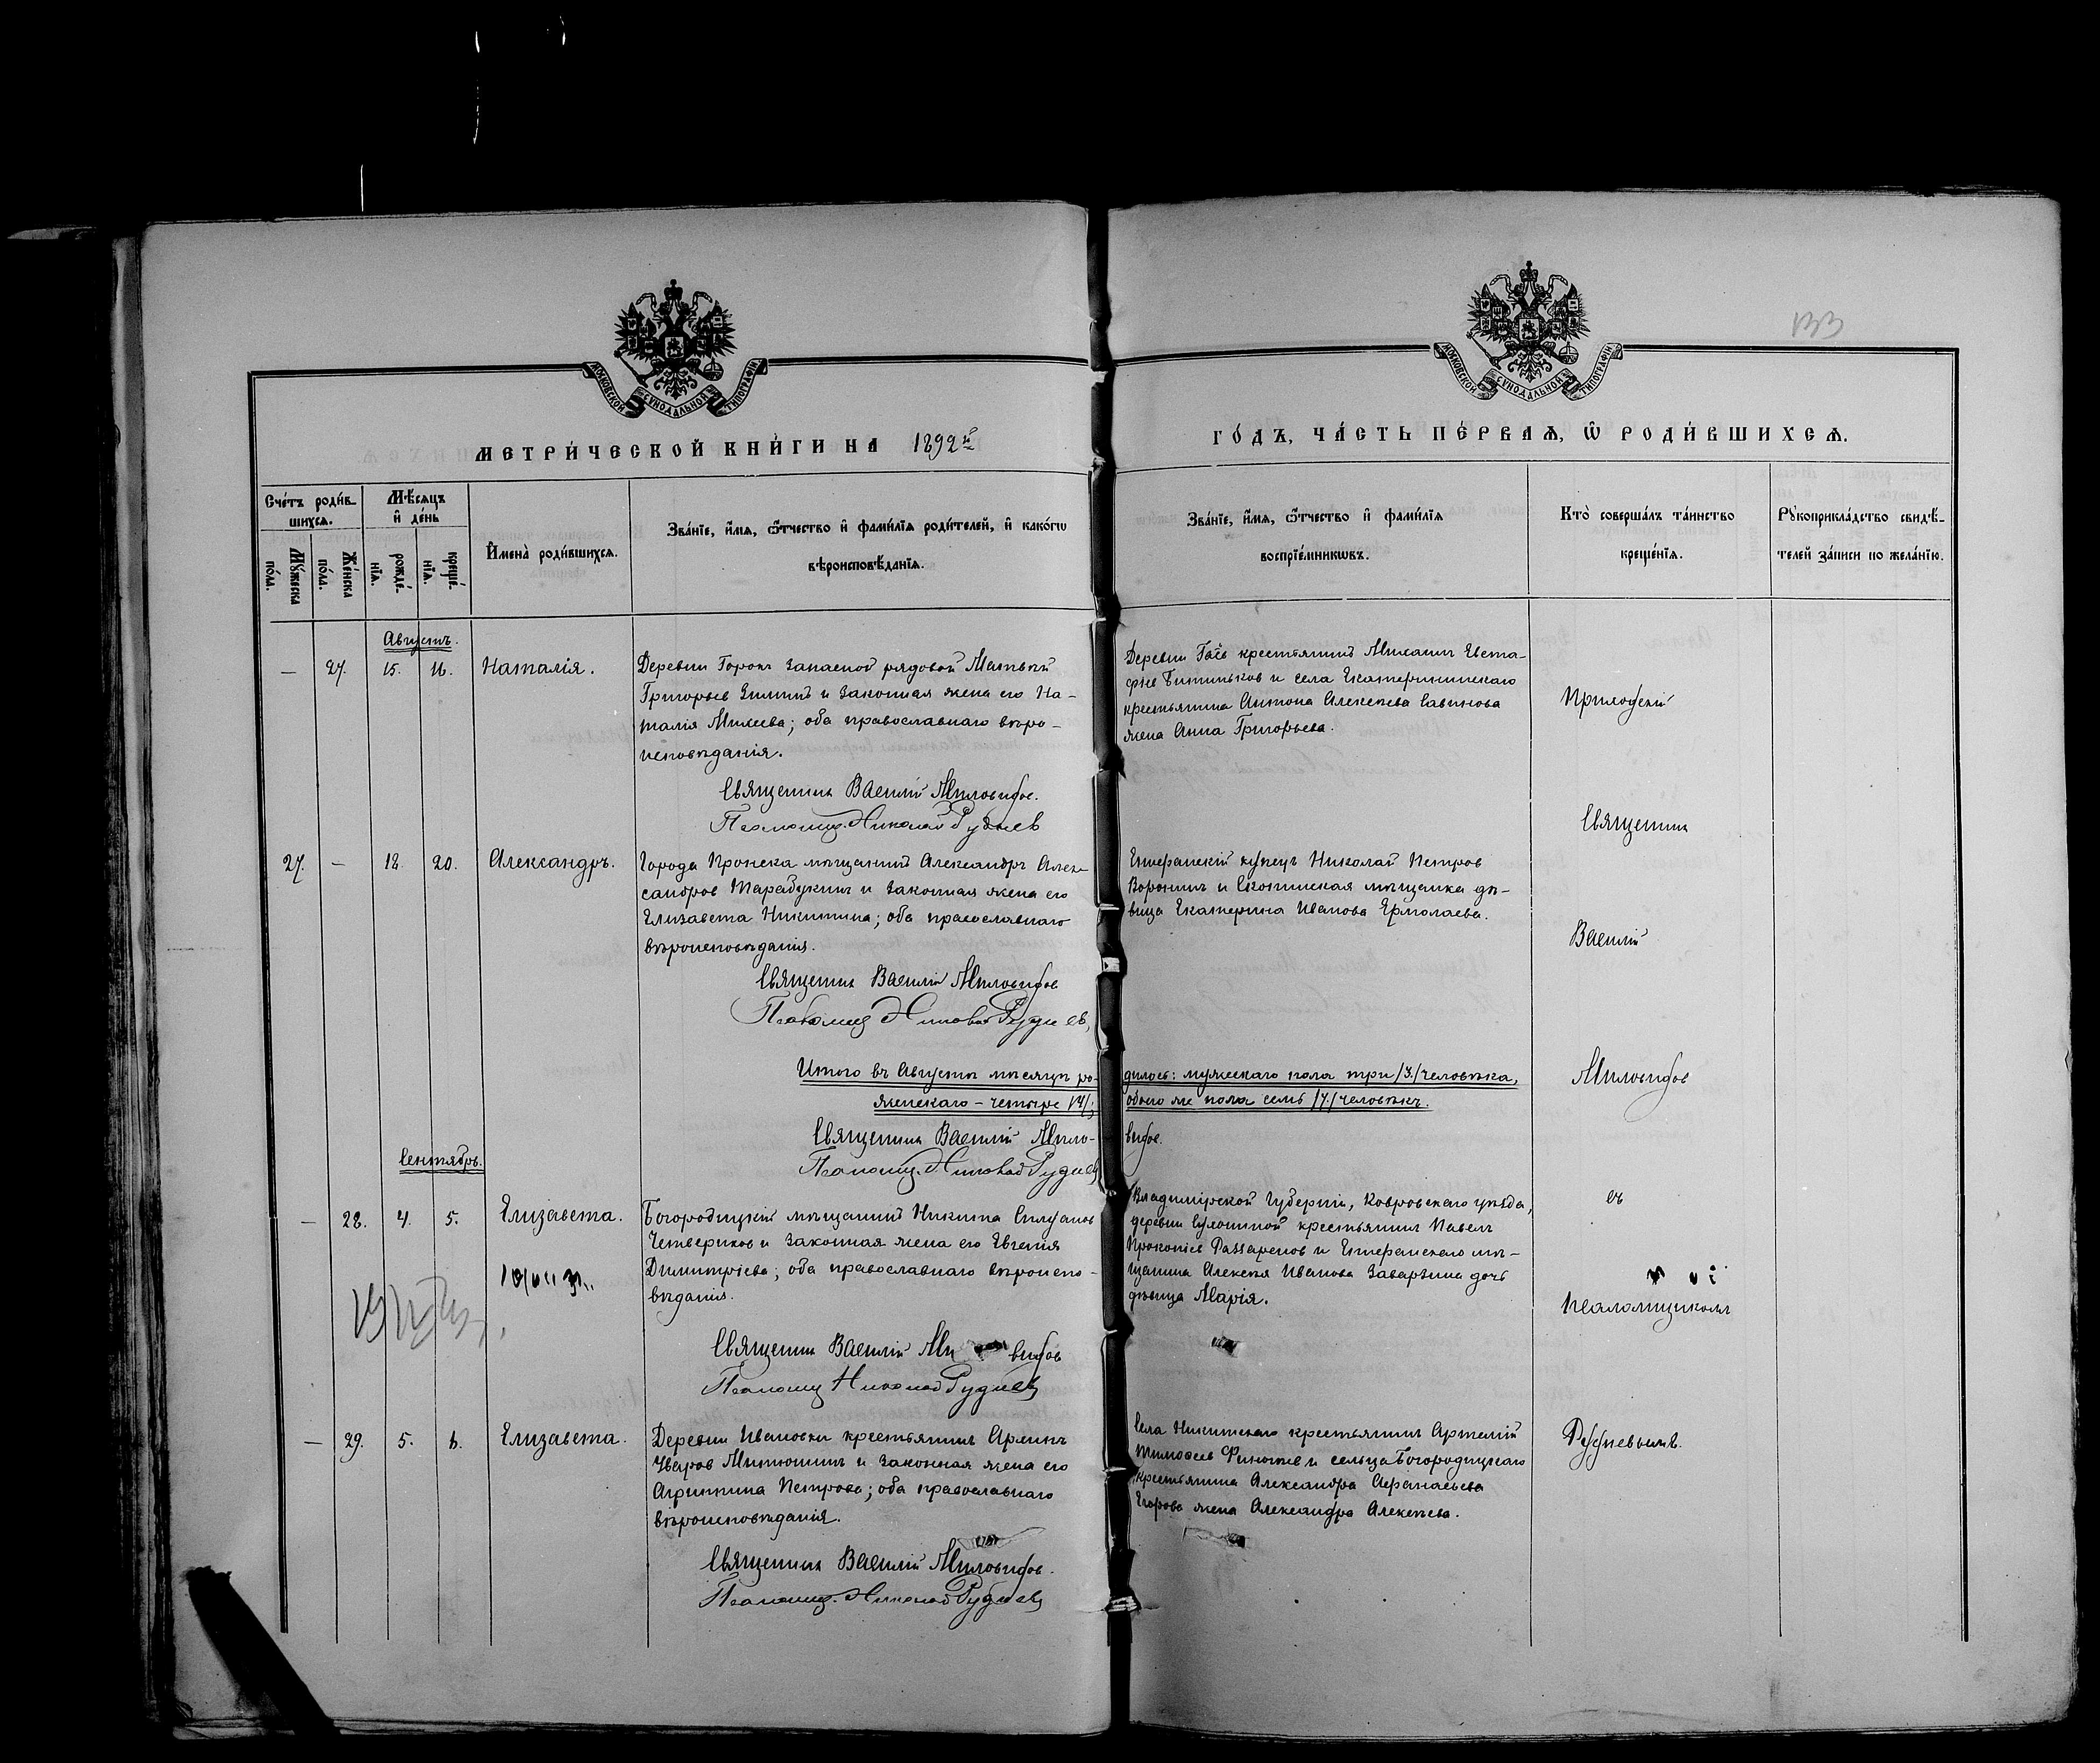 133
МОСКОВСКОЙ СУНОДАЛЬНОЙ ТИПОГРАФІИ
МОСКОВСКОЙ СУНОДАЛЬНОЙ ТИПОГРАФІИ
МЕТРИ́ЧЕСКОЙ КНИ́ГИ НА 1892й
ГО́ДЪ, ЧА́СТЬ ПЕ́РВАѦ, Ѿ РОДИ́ВШИХСѦ.
Счетъ родив-
шихсѧ.
Мѣсѧцъ
и день
Мужеска
пола.
Женска
пола.
рожде-
нїѧ.
креще-
нїѧ.
Имена родившихсѧ.
Званїе, имѧ, ѿчество и фамилїѧ родителей, и какогѡ
вѣроисповѣданїѧ.
Званїе, имѧ, ѿчество и фамилїѧ
воспрїемникѡвъ.
Кто совершалъ таинство
крещенїѧ.
Рукоприкладство свидѣ-
телей записи по желанїю.
Августъ.
— 27. 15. 16. Наталія.
Деревни Горокъ запасной рядовой Матвѣй
Григорьев Зиминъ и законная жена его На-
талія Михеева; оба православнаго вѣро-
исповѣданія.
Священник Василій Миловидов.
Псаломщ. Николай Руднев
Деревни крестьянинъ Михаилъ Евста-
фіев и села Екатерининскаго
крестьянина Антона Алексѣева Савинова
жена Анна Григорьева.
Приходскій
Священник
27. — 18. 20. Александръ.
Города Пронска мѣщанинъ Александръ Алек-
сандров Тарабукинъ и законная жена его
Елизавета Никитина; оба православнаго
вѣроисповѣданія.
Священник Василій Миловидов
Псаломщ Николай Руднев
Епифанскій купецъ Николай Петров
Воронинъ и Скопинская мѣщанка дѣ-
вица Екатерина Иванова Ермолаева.
Василій
Итого въ Августѣ мѣсяцѣ ро-
дилось: мужескаго пола три /3./ человѣка,
женскаго – четыре /4/;
обоего же пола семь /7./ человѣкъ.
Миловидов
Священник Василій Мило-
видов.
Псаломщ. Николай Руднев
Сентябрь.
— 28. 4. 5. Елизавета.
Богородицкій мѣщанинъ Никита Силуанов
Четвериков и законная жена его Евгенія
Димитріева; оба православнаго вѣроиспо-
вѣданія.
Священник Василій Ми видов
Псаломщ Николай Руднев
Владимірской Губерніи, Ковровскаго уѣзда,
деревни крестьянинъ Павелъ
Прокопіев и Епифанскаго мѣ-
щанина Алексѣя Иванова Заварзина дочь
дѣвица Марія.
съ
псаломщиком
— 29. 5. 6. Елизавета.
Деревни Ивановки крестьянинъ
Уваров Митюшинъ и законная жена его
Агрипина Петрова; оба православнаго
вѣроисповѣданія.
Священник Василій Миловидов.
Псаломщ. Николай Руднев
Села Никитскаго крестьянинъ Артемій
Тимофеев и сельца Богородицкаго
крестьянина Александра Афанасьева
Егорова жена Александра Алексѣева.
Рудневымъ.